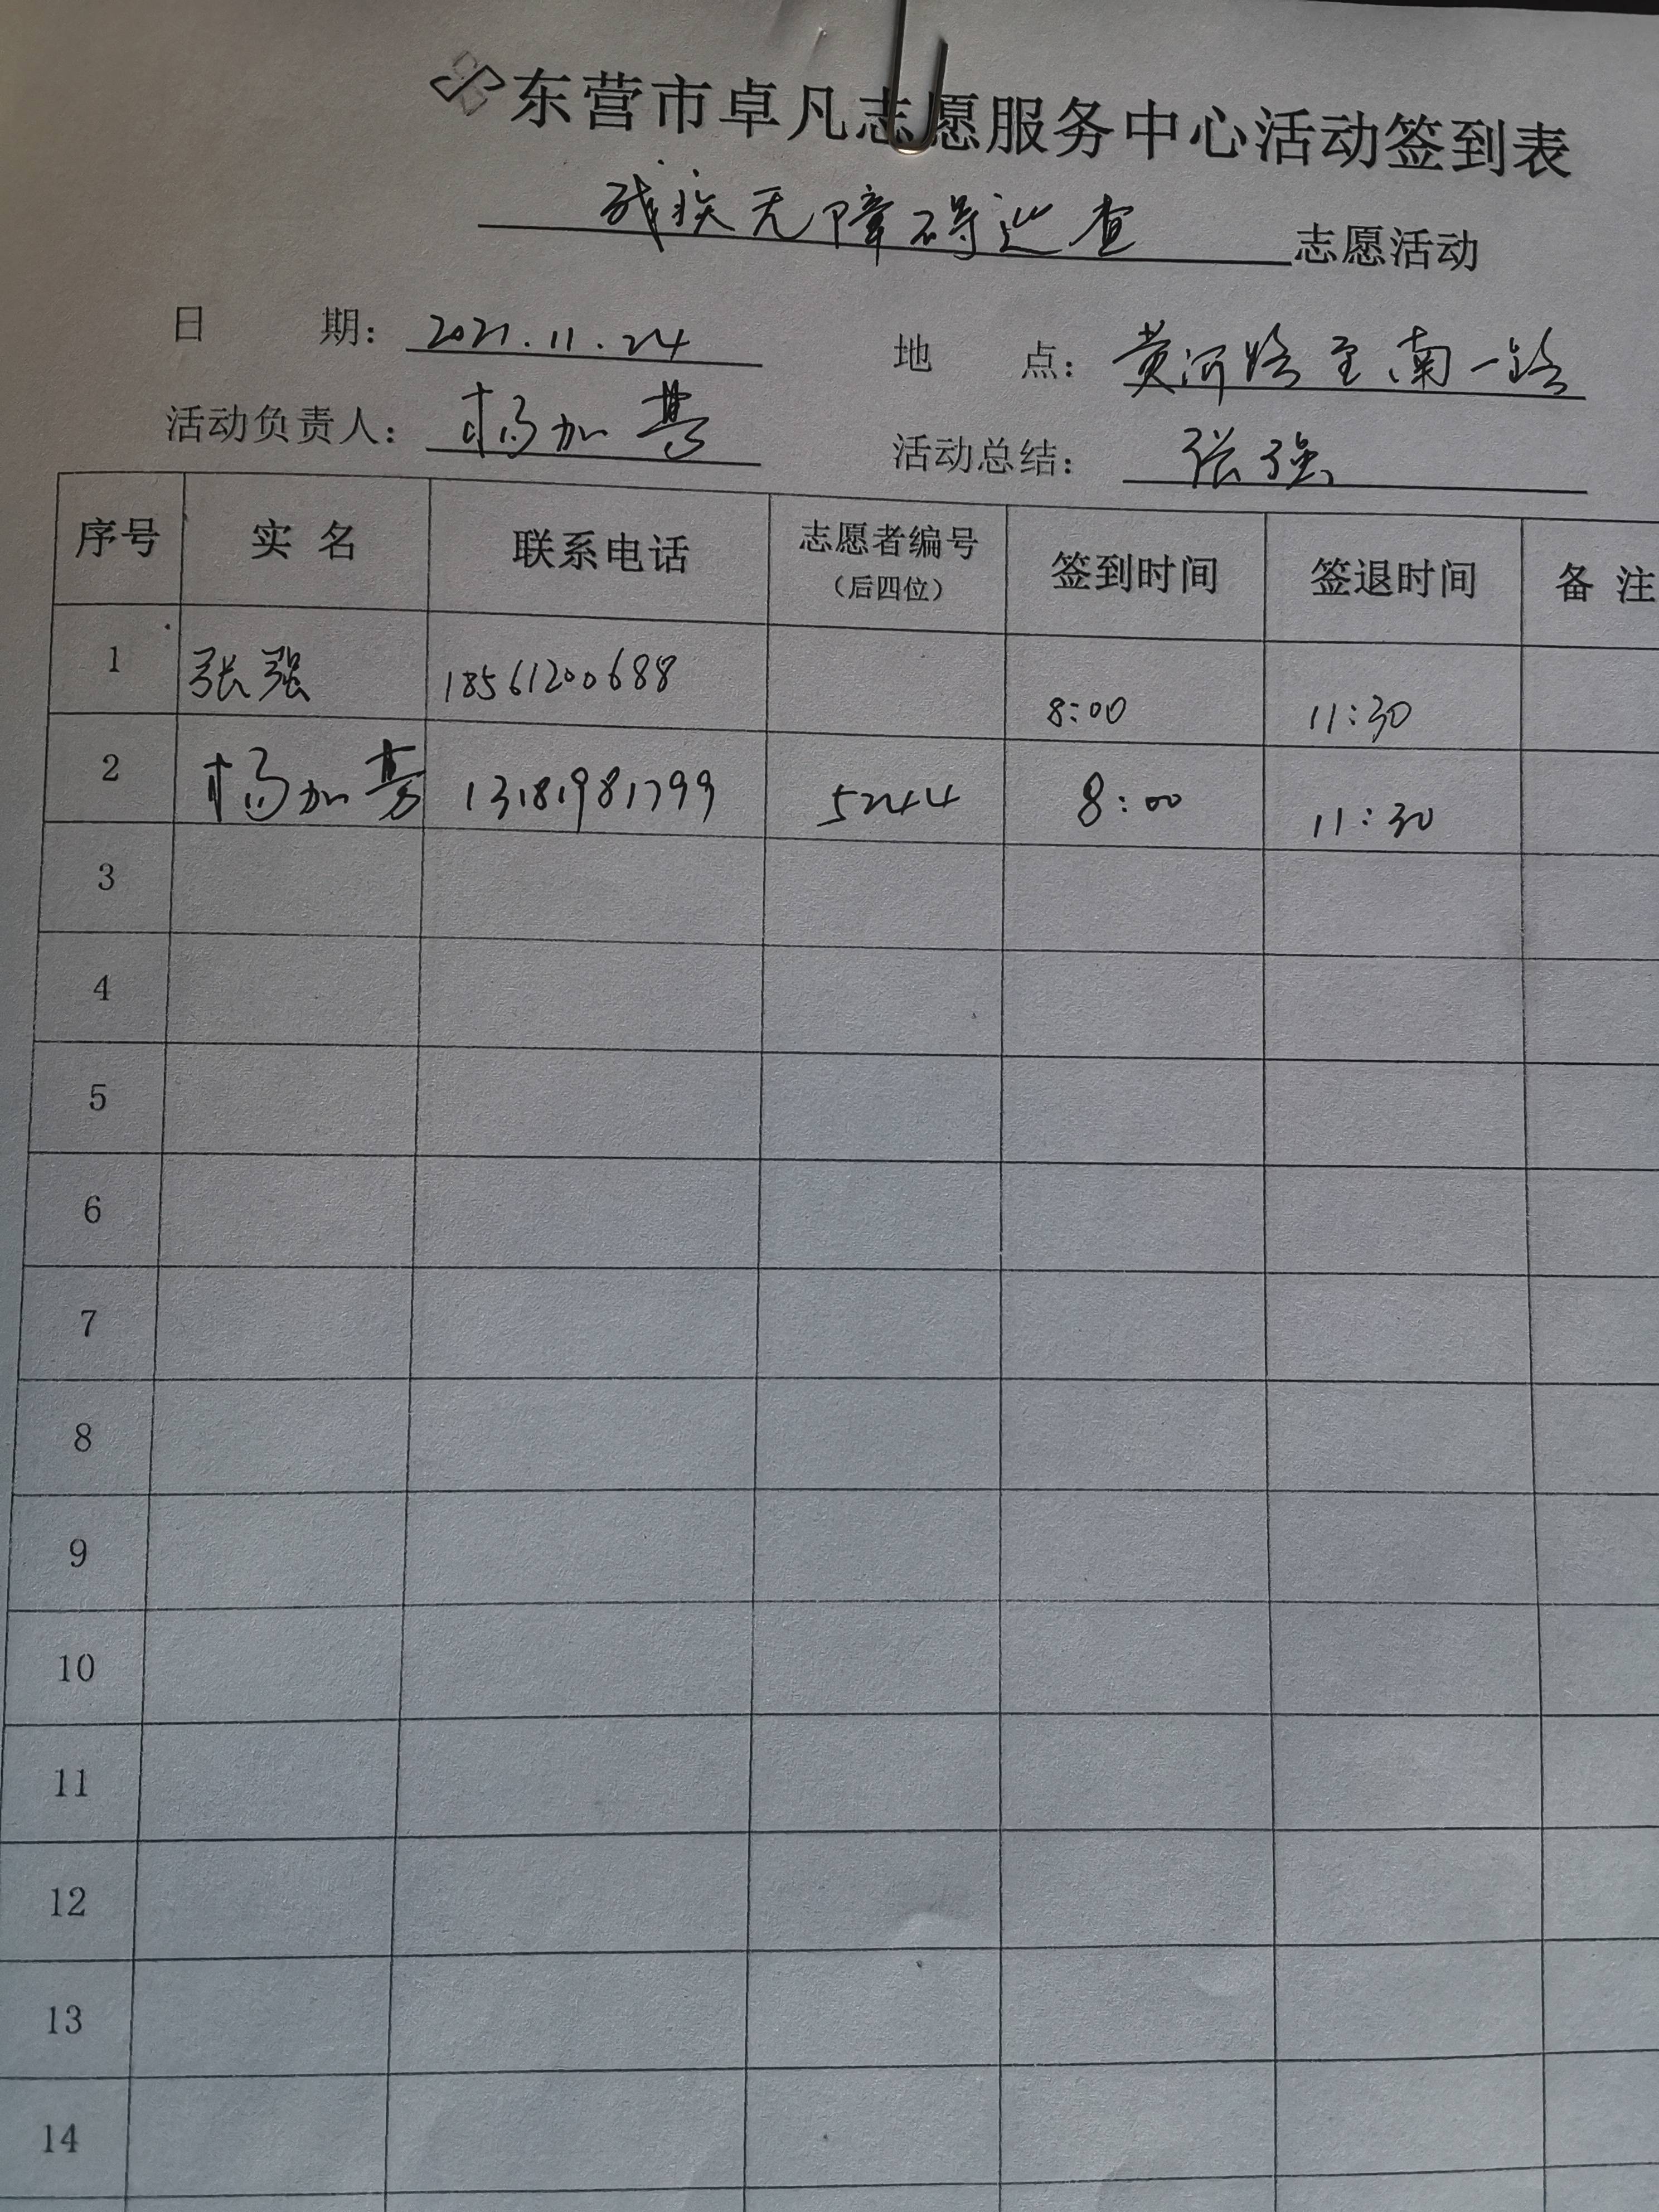 东营市卓凡志愿服务中心活动签到表
残疾无障碍巡查志愿活动
日 期：2021.11.24 地 点：黄河路至南一路
活动负责人：杨加 活动总结：张强
序号 实 名 联系电话 志愿者编号（后四位） 签到时间 签退时间 备 注
1 张强 18561200688 8:00 11:30
2 杨加 13181981799 5244 8:00 11:30
3
4
5
6
7
8
9
10
11
12
13
14